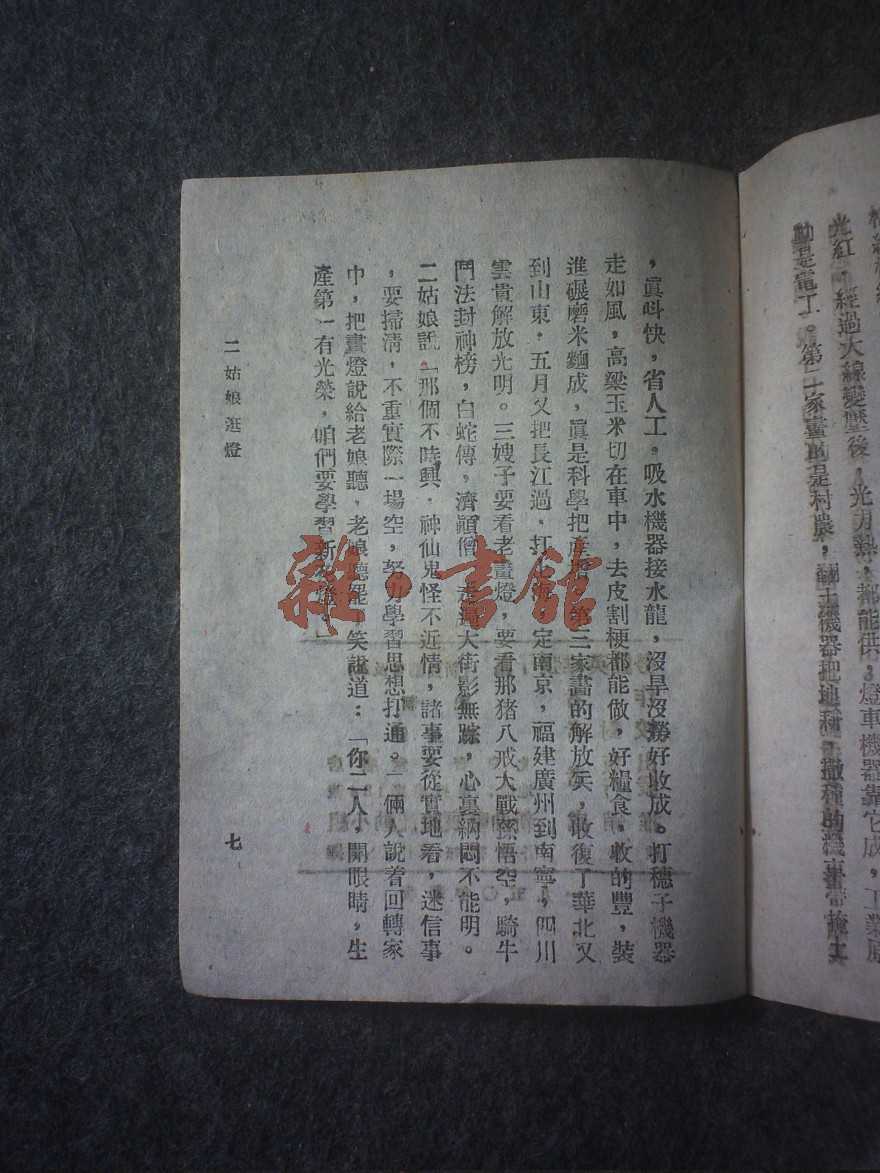 光紅，經過大線變壓後，光力熱，都能供，燈車機器靠它成，工業原
動是電工。第二家畫的是村農，翻土機器把地種，撒種的機
，眞呌快，省人工。吸水機器接水龍，沒旱沒澇好收成。打穗子機器
走如風，高粱玉米切在車中，去皮割梗都能做，好糧食，收的豐，裝
進碾磨米麵成，眞是科學把產增。第三家畫的解放兵，收復了華北又
到山東，五月又把長江過，打上海，定南京，福建廣州到南寧，四川
雲貴解放光明。三嫂子要看老畫燈，要看那猪八戒大戰孫悟空，騎牛
鬥法封神榜，白蛇傳，濟顚僧，走遍大街影無踪，心裏納悶不能明。
二姑娘說「那個不時興，神仙鬼怪不近情，諸事要從實地看，迷信事
，要掃清，不重實際一場空，努力學習思想打通。」倆人說着回轉家
中，把畫燈說給老娘聽，老娘聽罷，笑說道：「你二人，開眼睛，生
產第一有光榮，咱們要學習新名燈。」
二姑娘逛燈
七
雜·書館